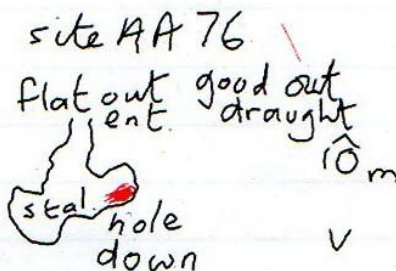 site AA 76
flat out good out
ent. draught
10 m
stal.
hole
down